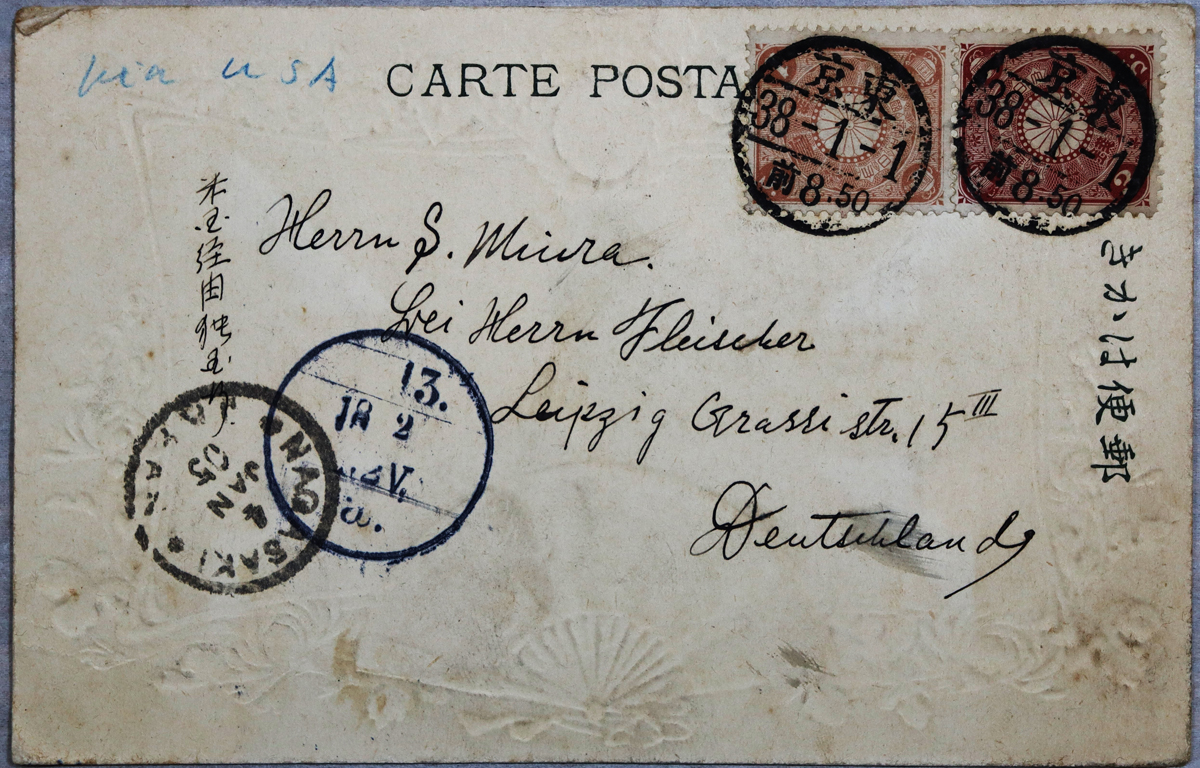 via USA
CARTE POSTA
東京
38-1-1
前8.50
東京
38-1-1
前8.50
郵便はかき
米国経由独国行
Herrn S. Miura.
bei Herrn Fleischer
Leipzig Grassistr. 15 III
Deutschland
13.
18 2
V.
NAGASAKI
4
JAN
05
JAPAN